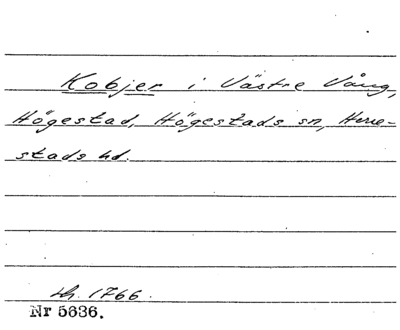 Kobjer i Västre Vång,
Högestad, Högestads sn, Herre-
stads hd.
Lh. 1766.
Nr 5636.